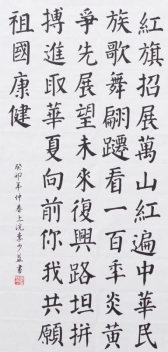 紅旗招展萬山紅遍中華民
族歌舞翩躚看一百年炎黃
爭先展望未來復興路坦拚
搏進取華夏向前你我共願
祖國康健
癸卯年仲春上浣